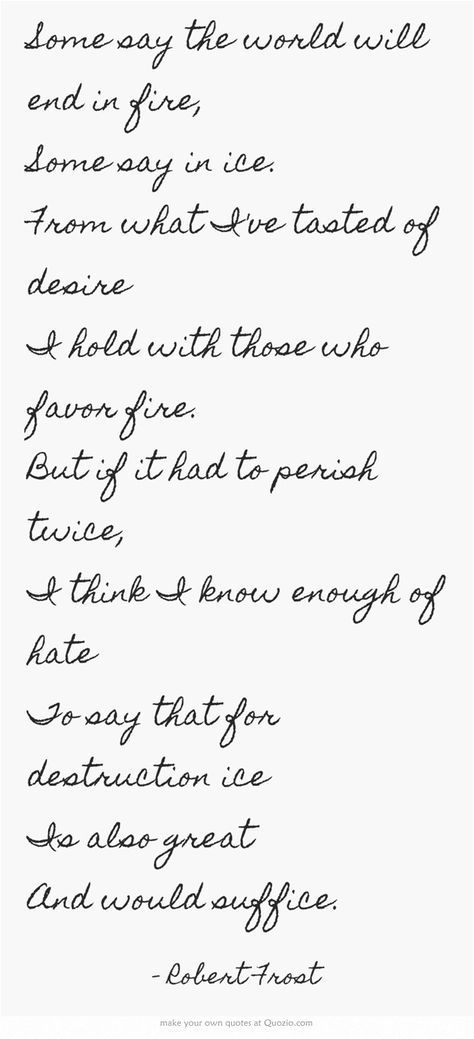 Some say the world will
end in fire,
Some say in ice.
From what I've tasted of
desire
I hold with those who
favor fire.
But if it had to perish
twice,
I think I know enough of
hate
To say that for
destruction ice
Is also great
And would suffice.
-Robert Frost
make your own quotes at Quozio.com